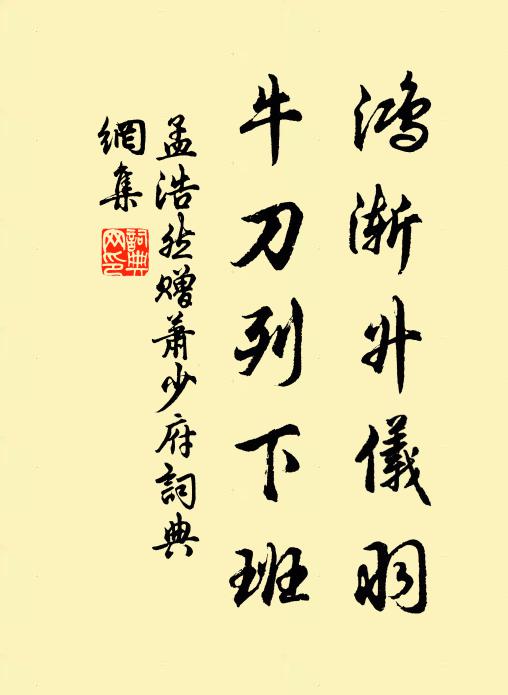 鸿渐升儀羽
牛刀列下班
孟浩然赠萧少府詞典
網集
詞典
网印